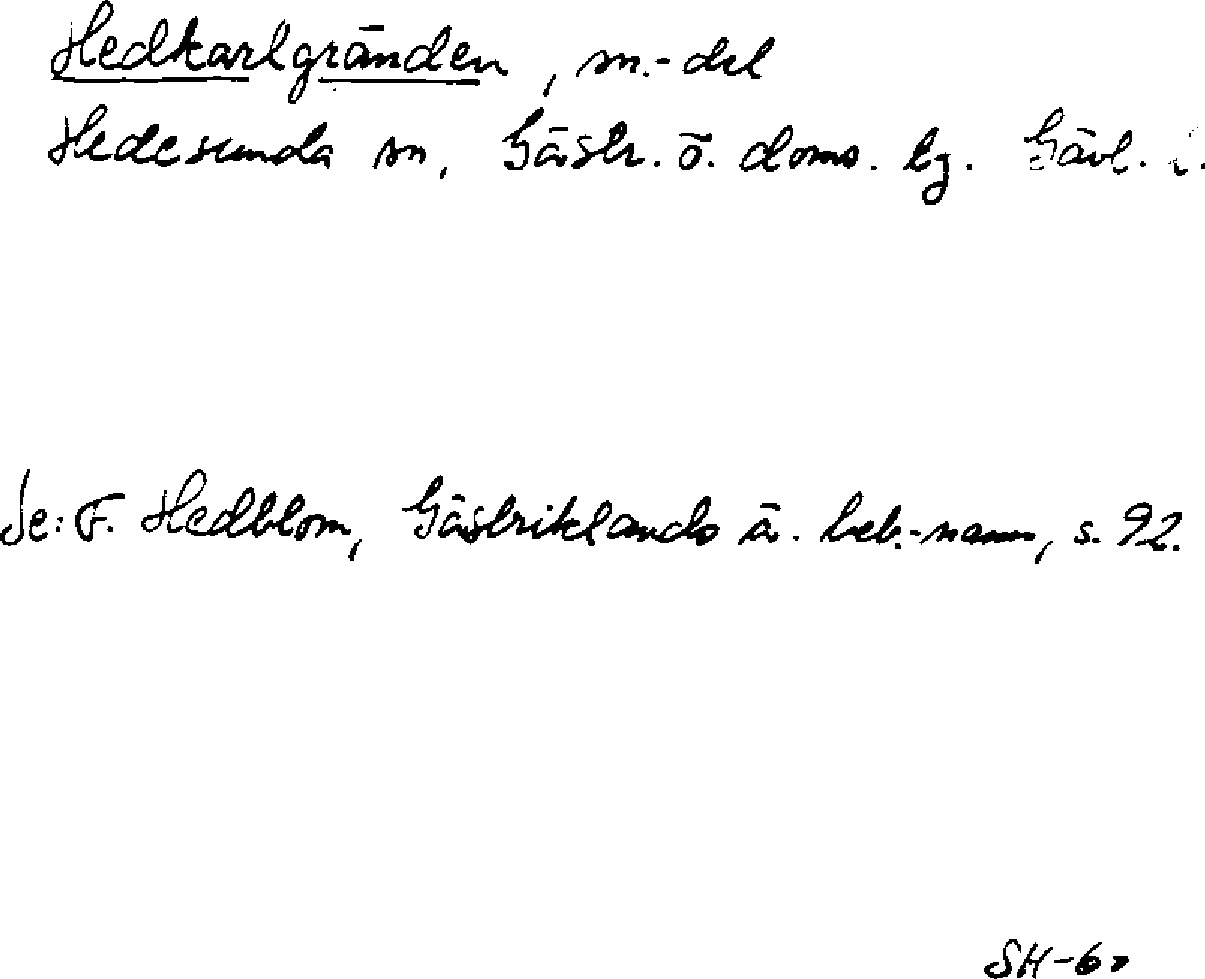 Hedkarlgränden, sn.-del
Hedesunda sn, Gästr. ö. doms. lg. Gävl. l.
Se: F. Hedblom, Gästriklands ä. beb.-namn, s. 92.
SH-60